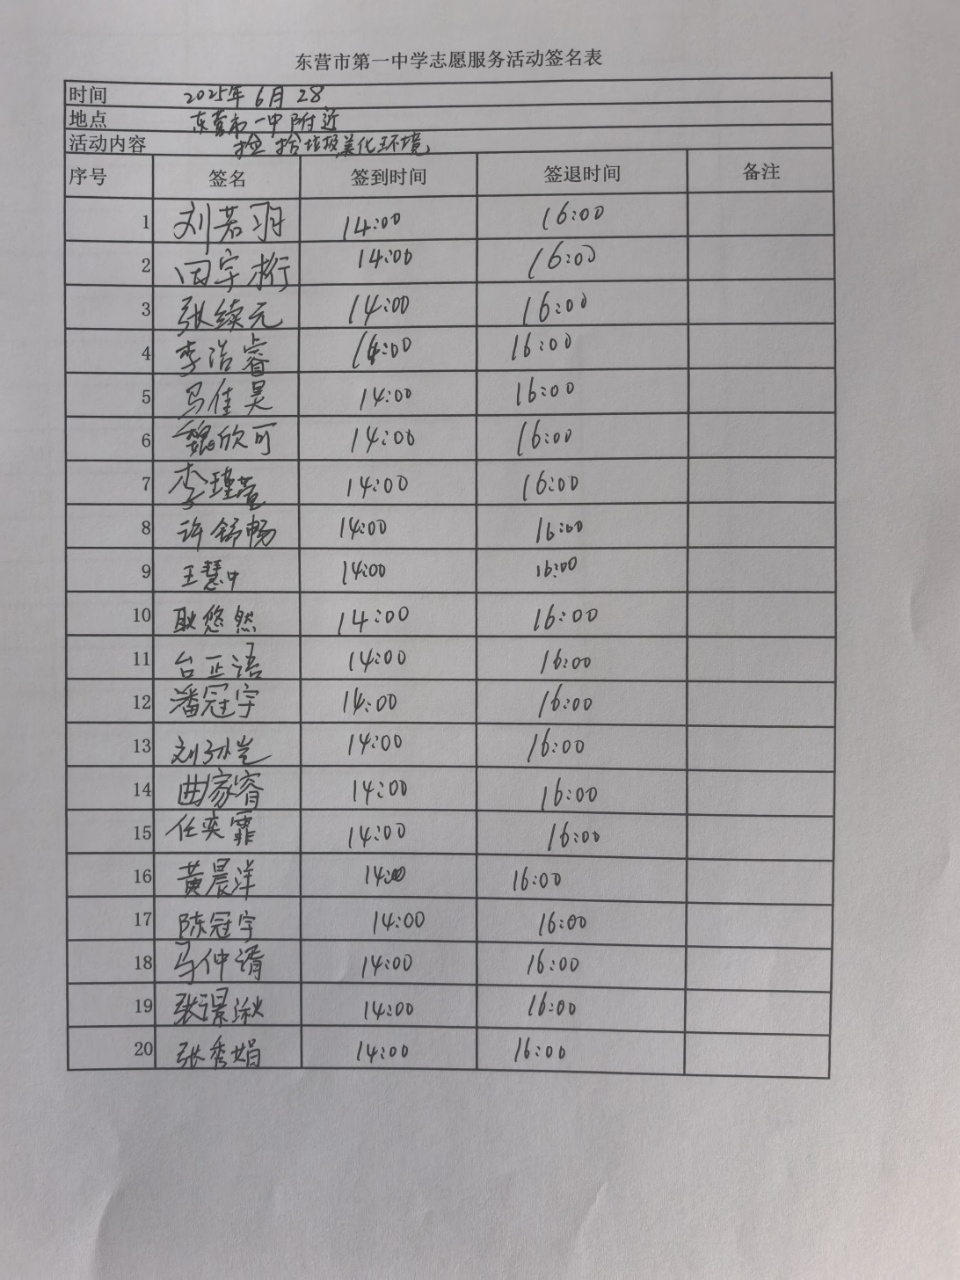 东营市第一中学志愿服务活动签名表
时间 2025年6月28
地点 东营市一中附近
活动内容 捡拾垃圾美化环境
序号 签名 签到时间 签退时间 备注
1 刘若羽 14:00 16:00
2 田宇桁 14:00 16:00
3 张续元 14:00 16:00
4 李浩睿 14:00 16:00
5 马佳昊 14:00 16:00
6 魏欣可 14:00 16:00
7 李瑾萱 14:00 16:00
8 许舒畅 14:00 16:00
9 王慧中 14:00 16:00
10 耿悠然 14:00 16:00
11 台正语 14:00 16:00
12 潘冠宇 14:00 16:00
13 刘孙岂 14:00 16:00
14 曲家睿 14:00 16:00
15 任奕霏 14:00 16:00
16 黄晨洋 14:00 16:00
17 陈冠宇 14:00 16:00
18 马仲谞 14:00 16:00
19 张湫 14:00 16:00
20 张秀娟 14:00 16:00